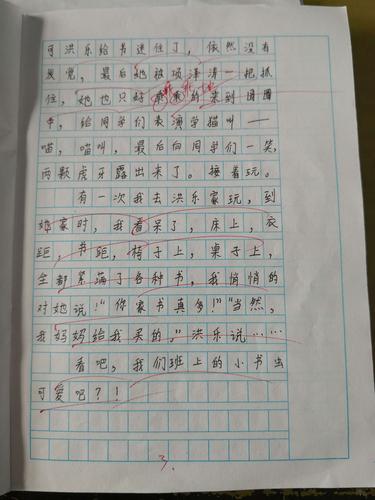 可洪乐给书迷住了，依然没有
发觉，最后她被项涛涛一把抓
住，她也只好乖乖的来到圈圈
中，给同学们表演学猫叫一
喵，喵叫，最后向同学们一笑，
两颗虎牙露出来了。接着玩。
有一次我去洪乐家玩，到
她家时，我看呆了，床上，衣
距，书距，椅子上，桌子上，
全都累满了各种书，我悄悄的
对她说！“你家书真多！”“当然，
我妈妈给我买的，”洪乐说……
看吧，我们班上的小书虫
可爱吧？！
3.